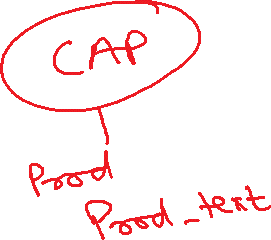 CAP
Prod
Prod_text